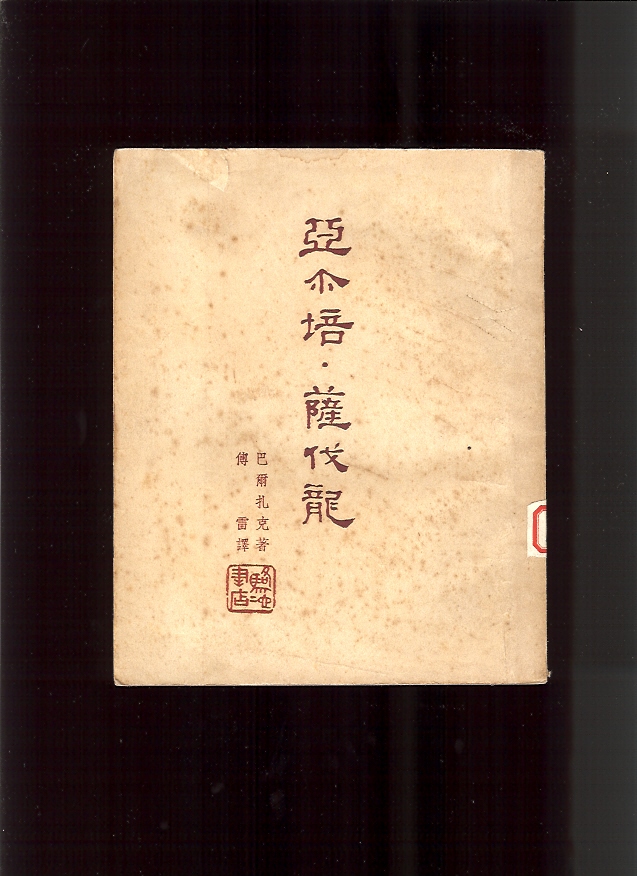 亞尒培·薩伐龍
巴爾扎克著
傅雷譯
駱駝書店